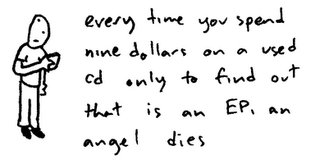 every time you spend
nine dollars on a used
cd only to find out
that is an EP, an
angel dies